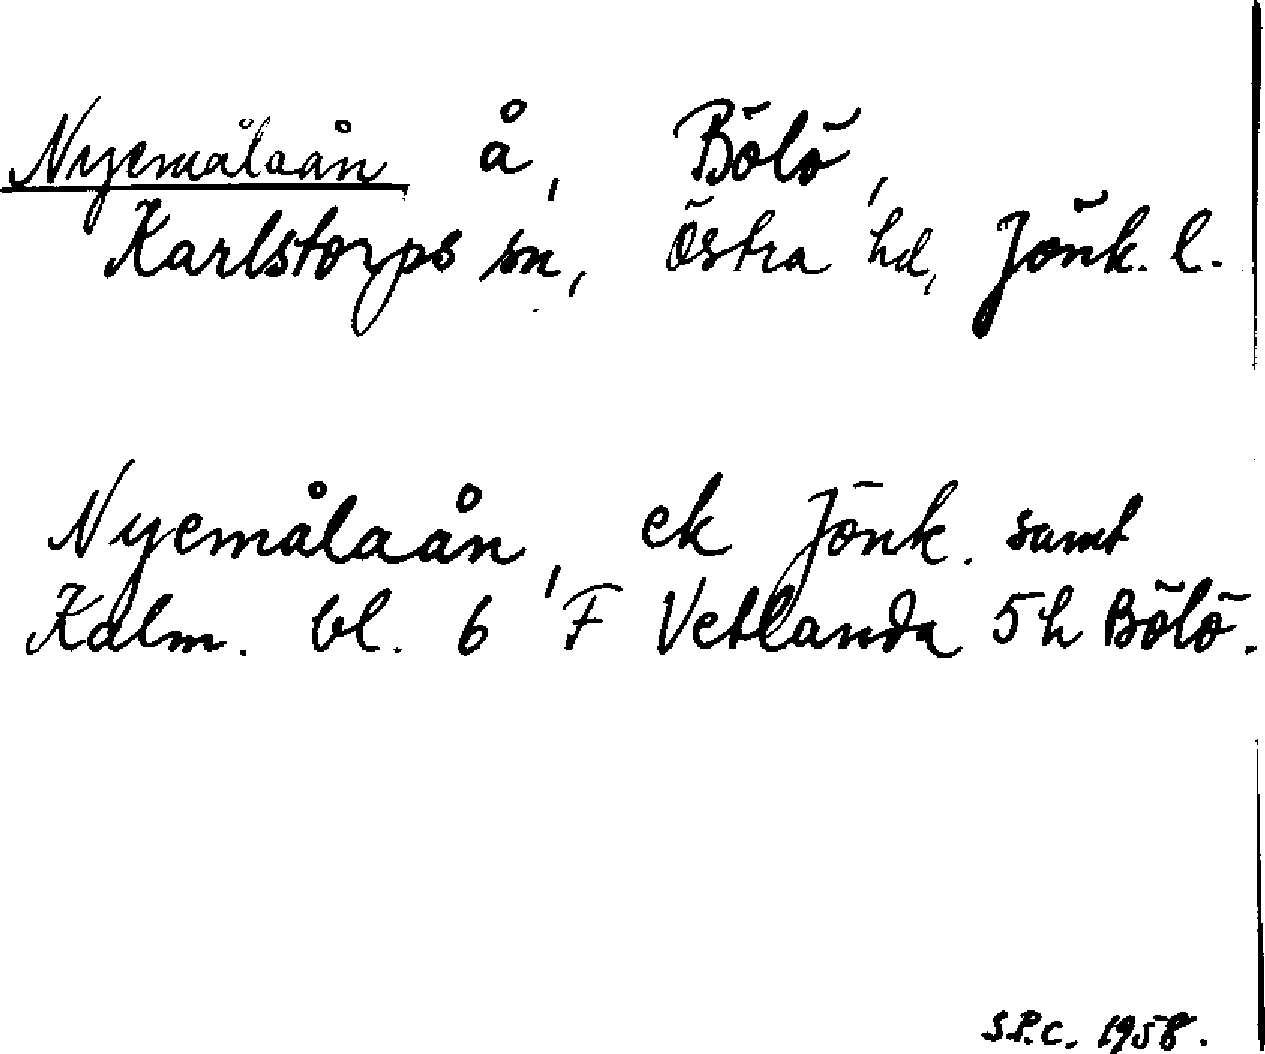 Nyemålaån å, Bölö,
Karlstorps sn, Östra hd, Jönk. l.
Nyemålaån, ek Jönk. samt
Kalm. bl. 6 F Vetlanda 5 h Bölö.
S.P.C. 1958.